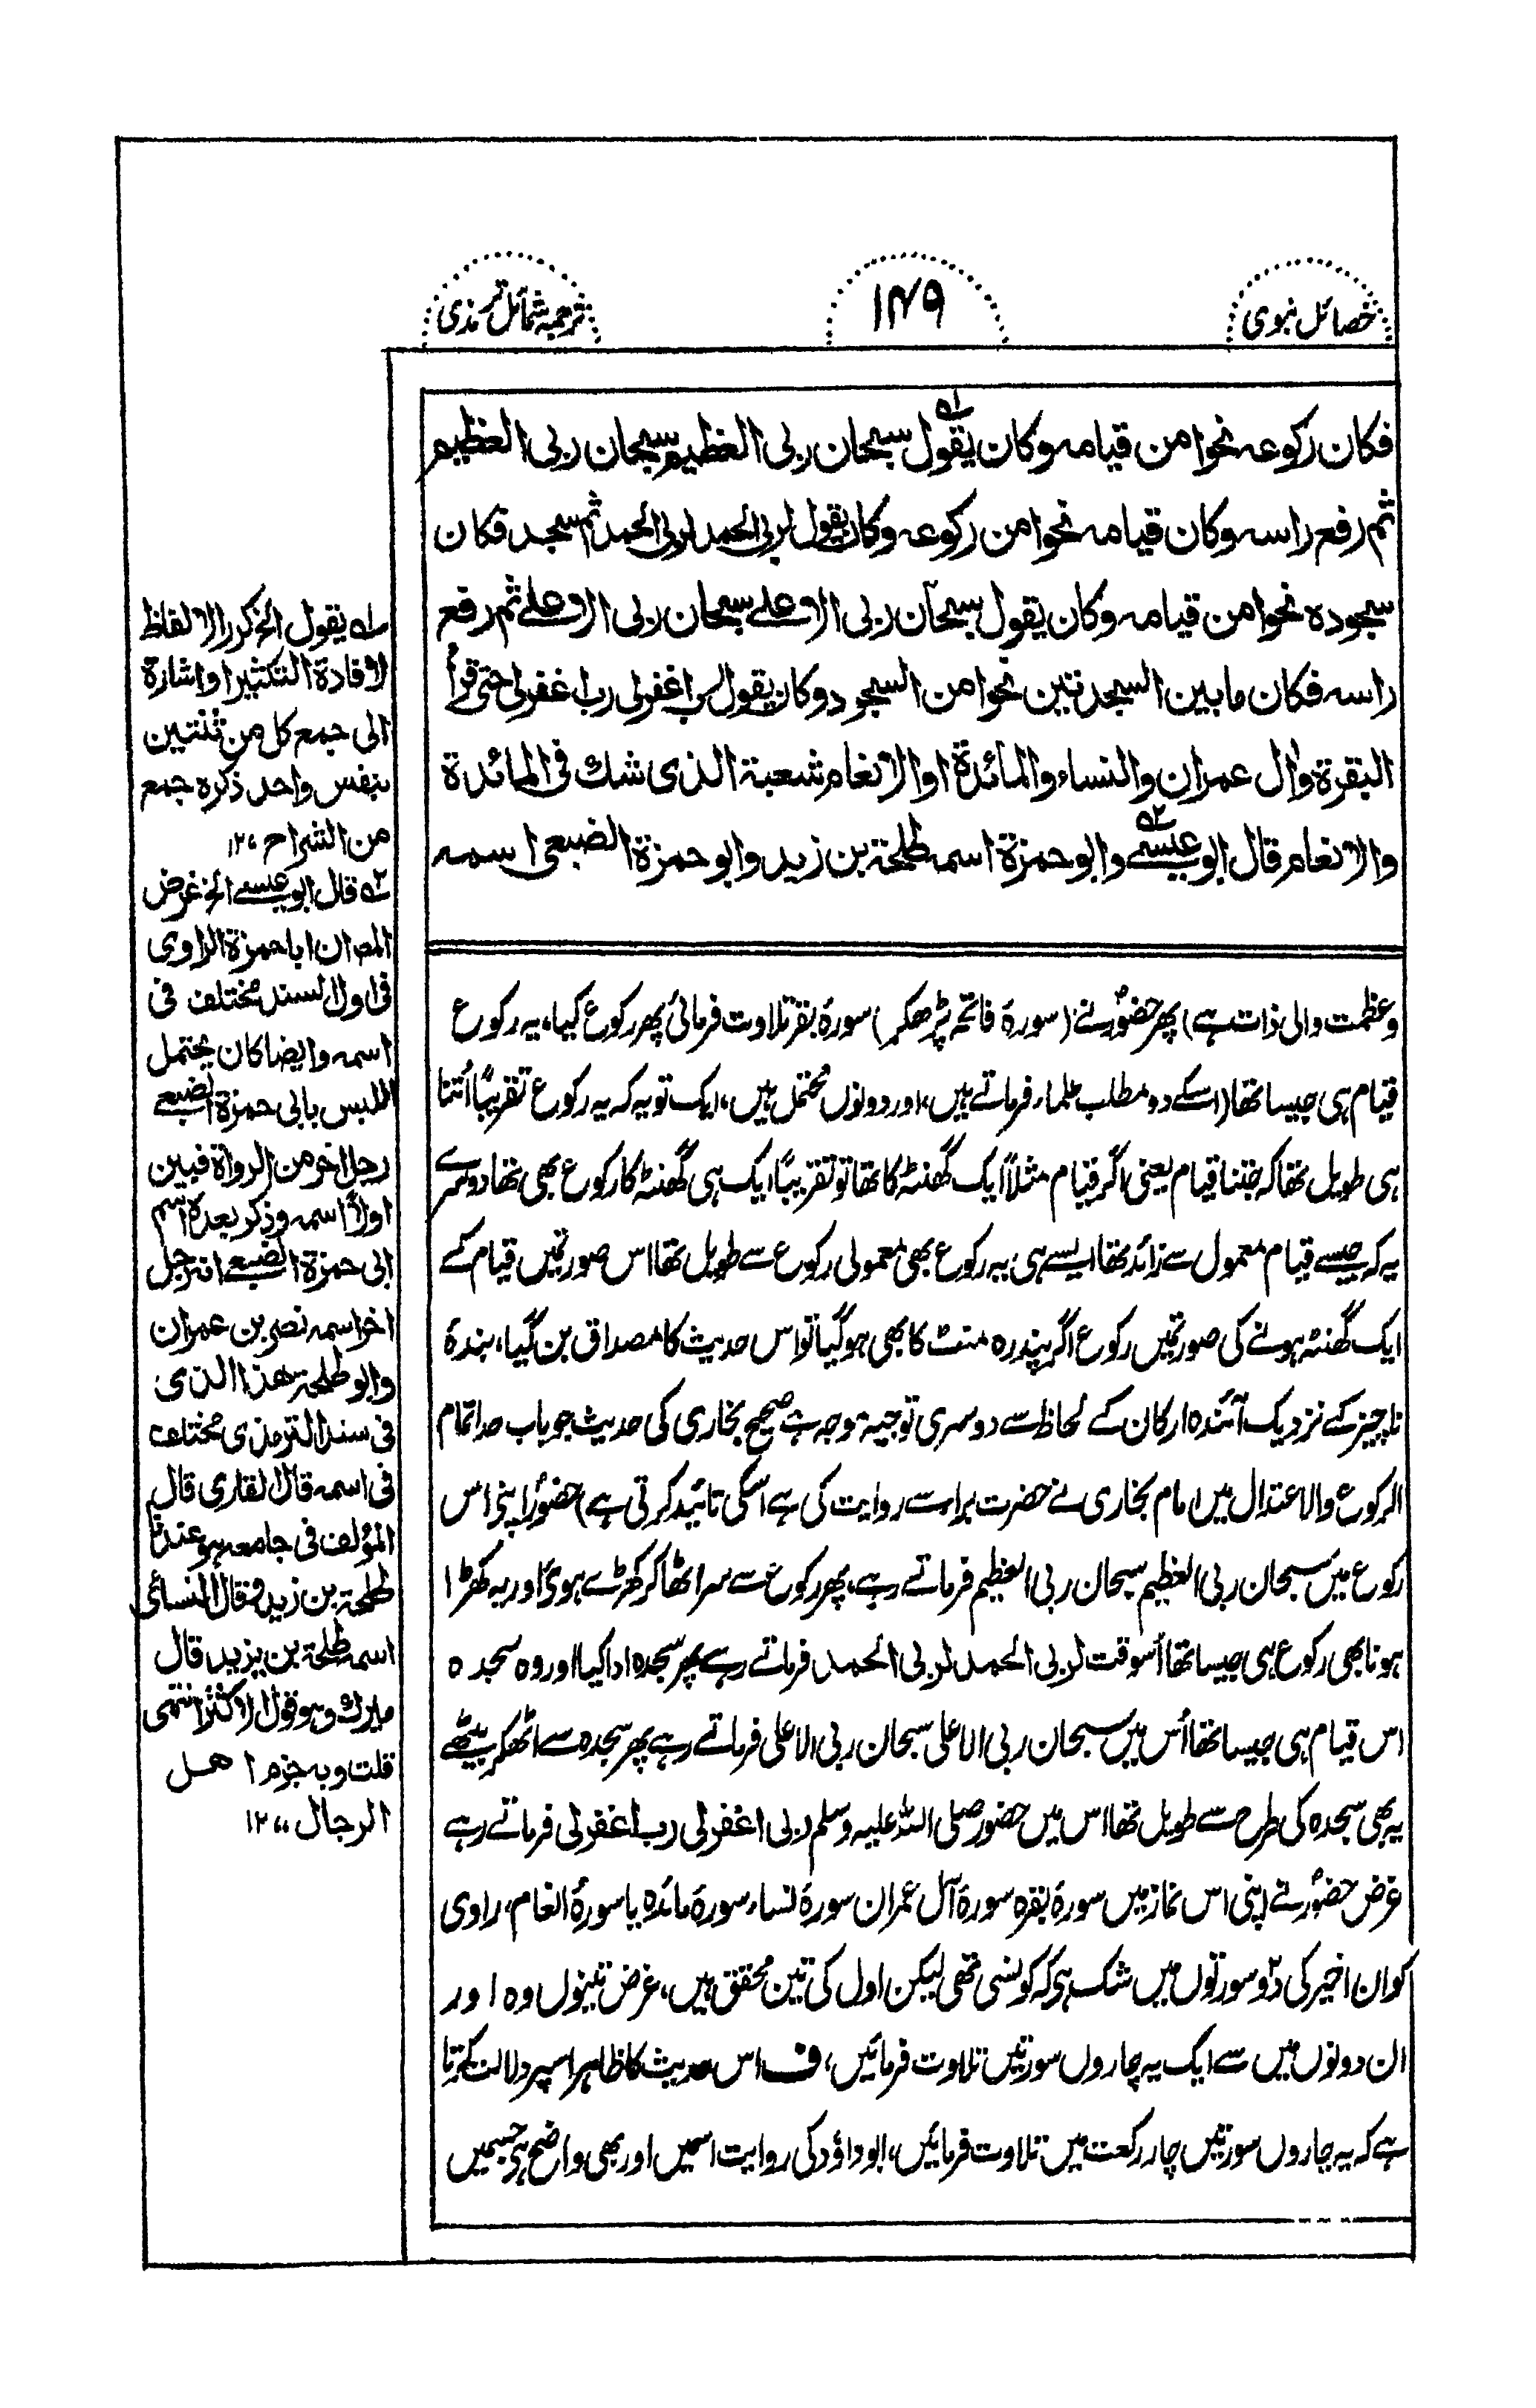 خصائل نبوی
۱۴۹
ترجمہ شمائل ترمذی
فکان رکوعہ نحوا من قیامہ وکان یقول سبحان ربی العظیم سبحان ربی العظیم
ثم رفع راسہ وکان قیامہ نحوا من رکوعہ وکان یقول لربی الحمد لربی الحمد ثم سجد فکان
سجودہ نحوا من قیامہ وکان یقول سبحان ربی الاعلے سبحان ربی الاعلے ثم رفع
راسہ فکان مابین السجدتین نحوا من السجود وکان یقول رب اغفرلی رب اغفرلی حتی قرأ
البقرۃ واٰل عمران والنساء والمائدۃ اوالانعام شعبۃ الذی شک فی المائدۃ
والانعام قال ابو عیسے وابو حمزۃ اسمہ طلحۃ بن زید وابو حمزۃ الضبعی اسمہ
وعظمت والی ذات ہے) پھر حضورؐ نے (سورۂ فاتحہ پڑھکر) سورۂ بقر تلاوت فرمائی پھر رکوع کیا، یہ رکوع
قیام ہی جیسا تھا (اسکے دو مطلب علماء فرماتے ہیں، اور دونوں محتمل ہیں، ایک تو یہ کہ یہ رکوع تقریباً اُتنا
ہی طویل تھا کہ جتنا قیام یعنی اگر قیام مثلاً ایک گھنٹہ کا تھا تو تقریباً ایک ہی گھنٹہ کا رکوع بھی تھا دوسرے
یہ کہ جیسے قیام معمول سے زائد تھا ایسے ہی یہ رکوع بھی معمولی رکوع سے طویل تھا اس صورتمیں قیام کے
ایک گھنٹہ ہونے کی صورتمیں رکوع اگر پندرہ منٹ کا بھی ہوگیا تو اس حدیث کا مصداق بن گیا، بندۂ
ناچیز کے نزدیک آئندہ ارکان کے لحاظ سے دوسری توجیہ موجہ ہے صحیح بخاری کی حدیث جو باب حد اتمام
الرکوع والاعتدال میں امام بخاری نے حضرت براء سے روایت کی ہے اسکی تائید کرتی ہے) حضورؐ اپنی اس
رکوع میں سبحان ربی العظیم سبحان ربی العظیم فرماتے رہے، پھر رکوع سے سر اٹھا کر کھڑے ہوئی اور یہ کھڑا
ہونا بھی رکوع ہی جیسا تھا اُسوقت لربی الحمد لربی الحمد فرماتے رہے پھر سجدہ ادا کیا اور وہ سجدہ
اس قیام ہی جیسا تھا اُس میں سبحان ربی الاعلی سبحان ربی الاعلی فرماتے رہے پھر سجدہ سے اٹھکر بیٹھے
یہ بھی سجدہ کی طرح سے طویل تھا اس میں حضور صلی اللہ علیہ وسلم ربی اغفرلی رب اغفرلی فرماتے رہے
غرض حضورؐ نے اپنی اس نماز میں سورۂ بقرہ سورۂ آل عمران سورۂ نساء سورۂ مائدہ یا سورۂ انعام، راوی
کو ان اخیر کی دو سورتوں میں شک ہی کہ کونسی تھی لیکن اول کی تین محقق ہیں، غرض تینوں وہ اور
ان دونوں میں سے ایک یہ چاروں سورتیں تلاوت فرمائیں، ف اس حدیث کا ظاہر اسپر دلالت کرتا
ہے کہ یہ چاروں سورتیں چار رکعت میں تلاوت فرمائیں، ابو داؤد کی روایت اسمیں اور بھی واضح ہی جسمیں
۱ھ یقول الخ کرر الالفاظ
لافادۃ التکثیر او اشارۃ
الی جمع کل من ثنتین
بنفس واحد ذکرہ جمع
من الشراح ۱۲
۲ھ قال ابو عیسے الخ غرض
المص ان ابا حمزۃ الراوی
فی اول السند مختلف فی
اسمہ وایضا کان یحتمل
اللبس بابی حمزۃ الضبعے
رجل اخر من الرواۃ فبین
اولاً اسمہ وذکر بعدہ اسم
ابی حمزۃ الضبعے انہ رجل
اخر اسمہ نصر بن عمران
وابو طلحۃ ھذا الذی
فی سند الترمذی مختلف
فی اسمہ قال القاری قال
المؤلف فی جامعہ ہو عندنا
طلحۃ بن زید وقال النسائی
اسمہ طلحۃ بن یزید قال
میرک وہو قول الاکثر انتھی
قلت وبہ جزم اھل
الرجال ۱۲